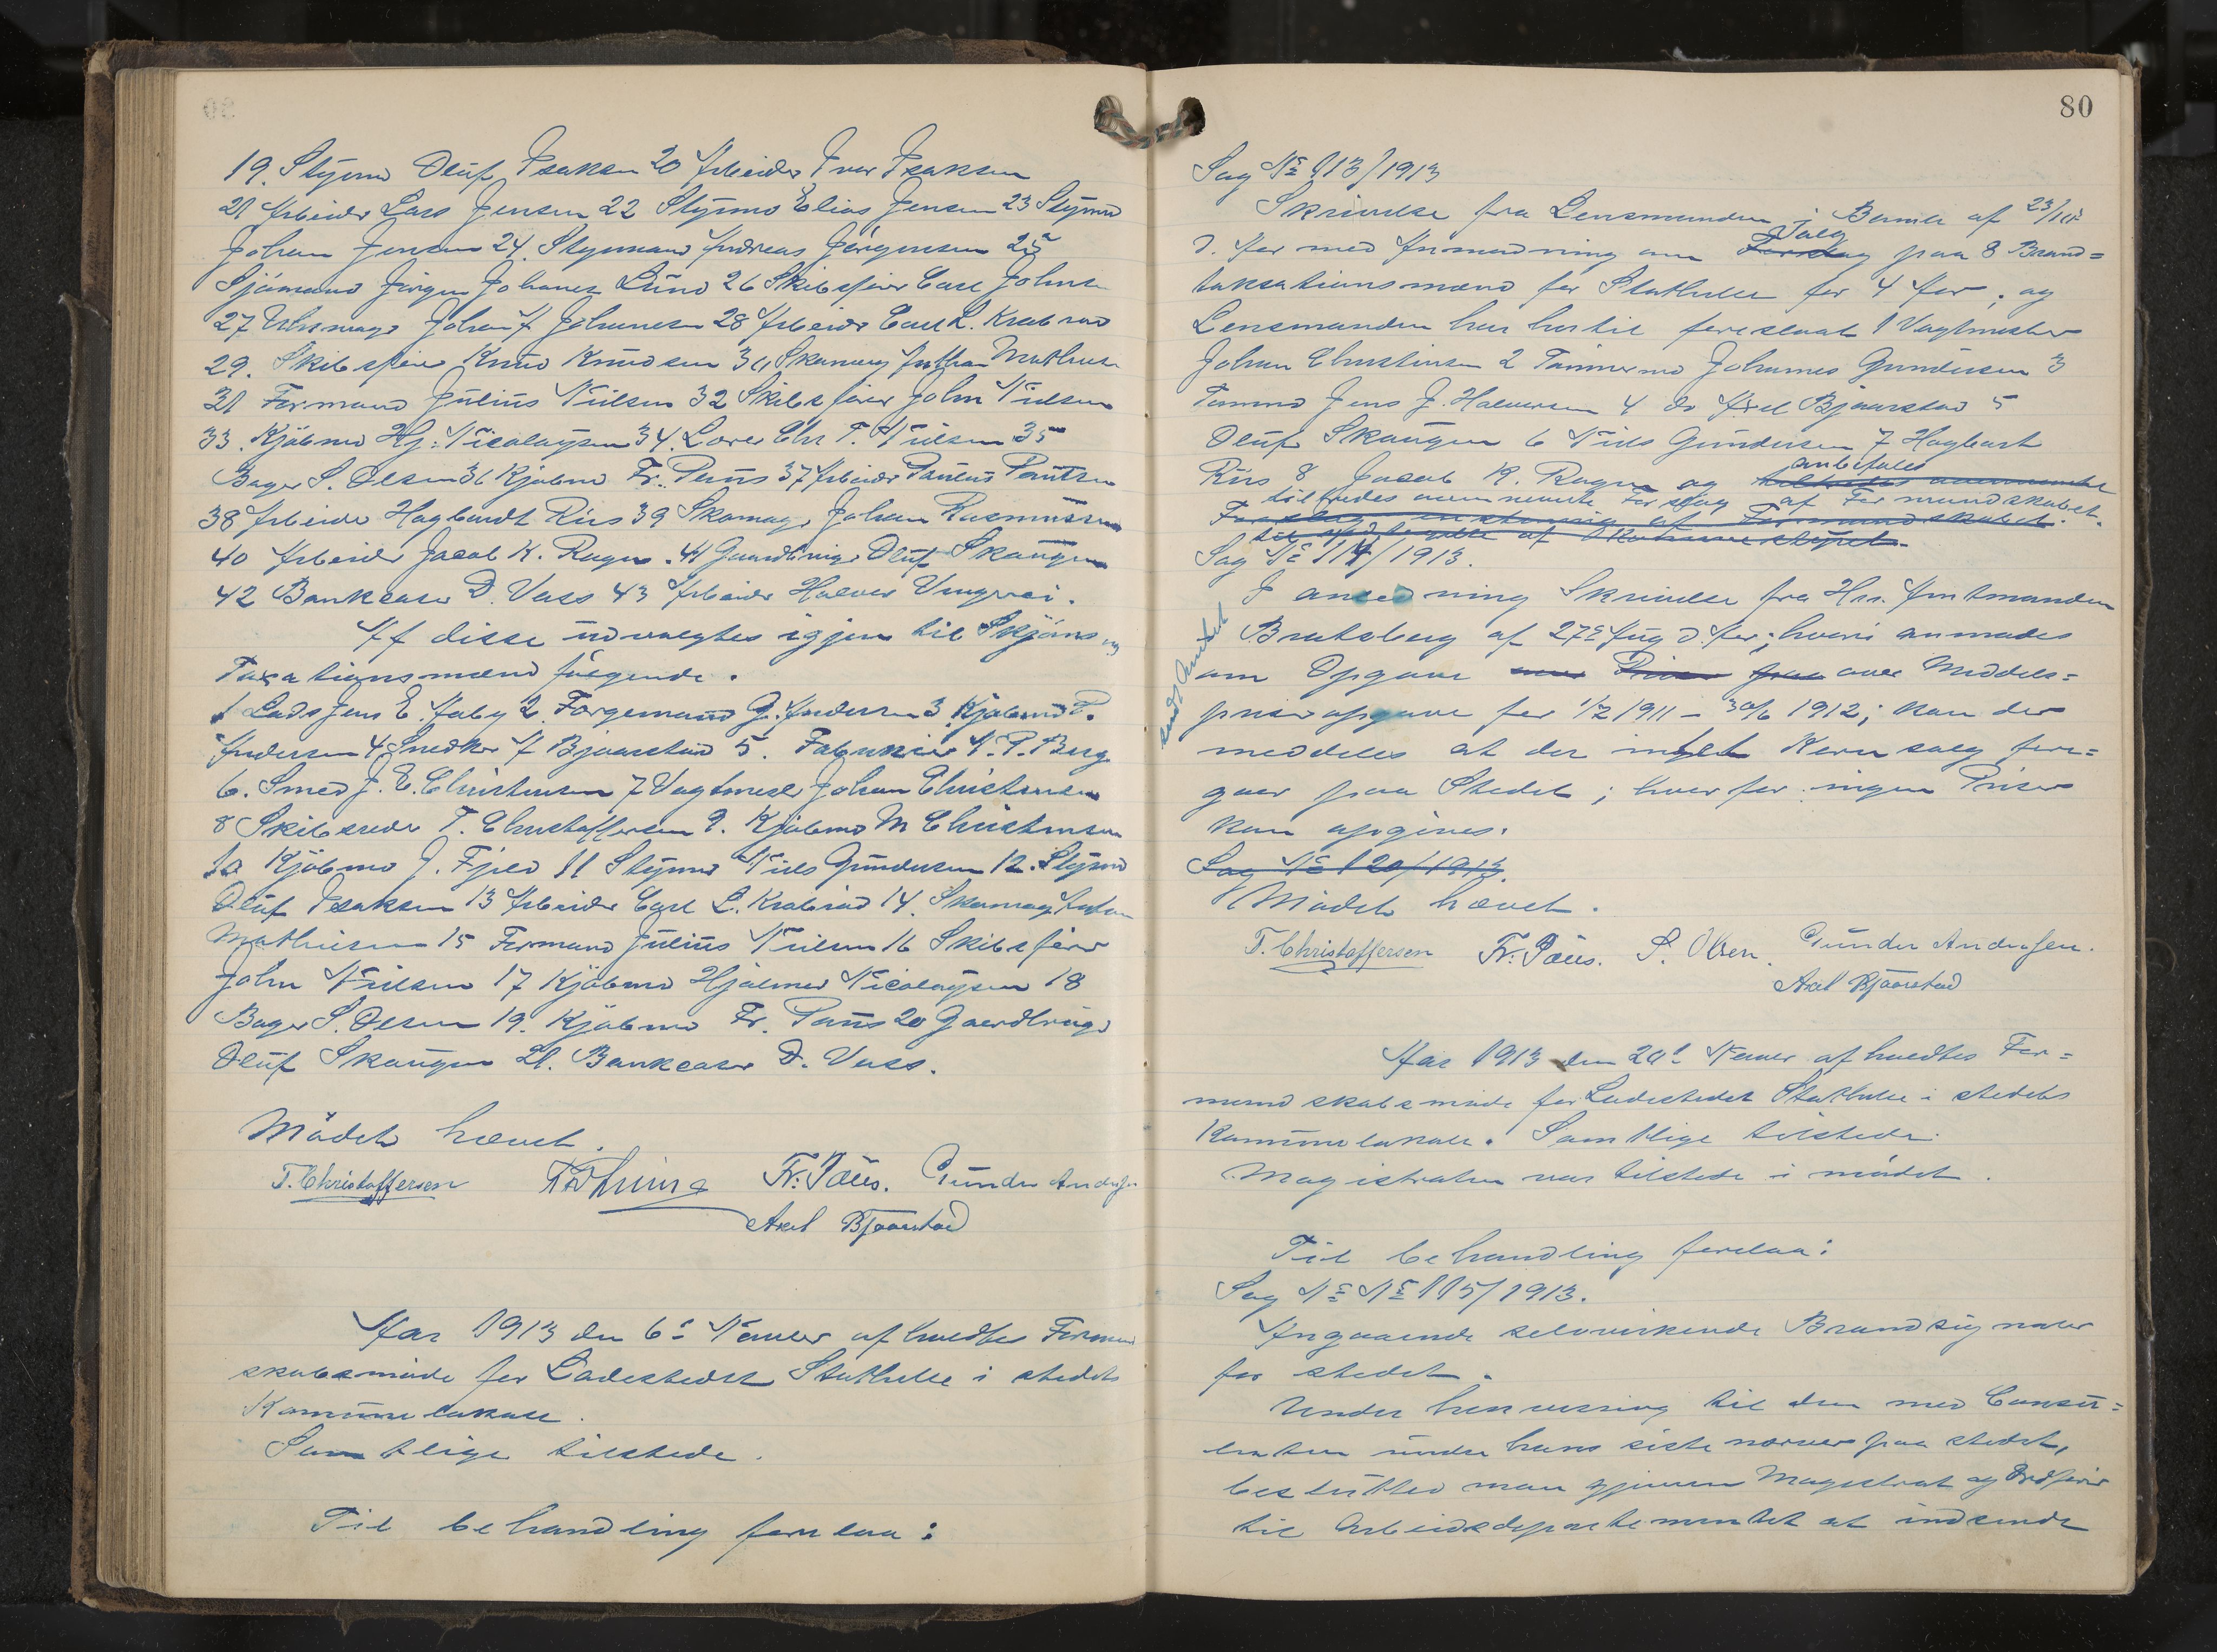 19. Styrmd Oluf Isaksen 20 Arbeider Ivar Isaksen
21 Arbeider Lars Jensen 22 Styrmd Elias Jensen 23 Styrmd
Johan Jensen 24. Styrmand Andreas Jörgensen 25
Sjömand Jörgen Johannes Lund 26 Skibsförer Carl Johnsen
27 Uhrmager Johan A Johannesen 28 Arbeider Carl L. Krabrød
29. Skibsförer Knud Knudsen 30 Skomag Anthon Mathisen
31 Formand Julius Nilsen 32 Skibsförer John Nilsen
33. Kjöbmd Hj. Nicolaysen 34. Lærer Chr T. Nilsen 35
Bager S. Olsen 36 Kjöbmd Fr. Paus 37 Arbeider Paulus Paulsen
38 Arbeider Hagbardt Riis 39 Skomager Johan Rasmussen
40 Arbeider Jacob K. Ragen. 41 Gaardbruger Oluf Skaugen
42 Bankcaser D. Vass 43 Arbeider Halvor Vingrei.
Af disse udvalgtes igjen til Skjöns og
Taxationsmænd fölgende.
1 Lods Jens E. Aaby 2. Færgemand G. Andersen 3 Kjöbmd P.
Andersen 4. Snedker A Bjaarstad 5. Fabrikeier N. P. Berg
6. Smed J. E. Christensen 7 Vagtmester Johan Christensen
8 Skibsreder T. Christoffersen 9. Kjöbmd M Christensen
10 Kjöbmd J. Fjeld 11 Styrmd Nils Gundersen 12. Styrmd
Oluf Isaksen 13 Arbeider Carl L. Krabrød 14. Skomag Anton
Mathisen 15 Formand Julius Nilsen 16 Skibsförer
John Nilsen 17 Kjöbmd Hjalmar Nicolaysen 18
Bager S. Olsen 19. Kjöbmd Fr. Paus 20 Gaardbruger
Oluf Skaugen 21. Bankcaser D. Vass.
Mödet hævet.
T. Christoffersen Fr. Paus. Gunder Andersen
Axel Bjaarstad
Aar 1913 den 6te Novber afholdtes Formand
skabsmöde for Ladestedet Stathelle i stedets
Kommunelokale.
Samtlige tilstede.
Til behandling forelaa:
80
Sag No 113/1913
Skrivelse fra Lensmanden i Bamle af 23/10
d. Aar med Anmodning om Forslag Valg paa 8 Brand=
taksationsmænd for Stathelle for 4 Aar, og
Lensmanden har hertil foreslaat 1 Vagtmester
Johan Christensen 2 Tömmermd Johannes Gundersen 3
Tömmd Jens J. Halvorsen 4 do Axel Bjaarstad 5
Oluf Skaugen 6 Nils Gundersen 7 Hagbart
Riis 8 Jacob K. Ragen og anbefales
tiltredes ovennevnte Forslag af Formandskabet.
Forslag enstemmig af Formandskabet.
Sag No 114/1913.
I anledning Skrivelse fra Hrr. Amtmanden
Bratsberg af 27de Aug d. Aar, hvori anmodes
om Opgave over Priser paa over Middels=
prisopgave for 1/7 1911 – 30/6 1912; kan der
meddeles at der intet Korn salg fore=
gaar paa Stedet; hvorfor ingen Priser
kan opgives.
Sendt Amtet
Sag No 120/1913.
Mödet hævet.
T. Christoffersen Fr. Paus. S. Olsen. Gunder Andersen.
Axel Bjaarstad
Aar 1913 den 20de Novber afholdtes For=
mandskabsmöde for Ladestedet Stathelle i stedets
Kommunelokale. Samtlige tilstede.
Magistraten var tilstede i mödet.
Til behandling forelaa:
Sag No No 115/1913.
Angaaende selvvirkende Brandsignaler
for stedet.
Under henvisning til den med Consu=
lenten under hans siste nærvær paa stedet,
beslutted man gjennem Magistrat og Ordförer
til Arbeidsdepartementet at indsende